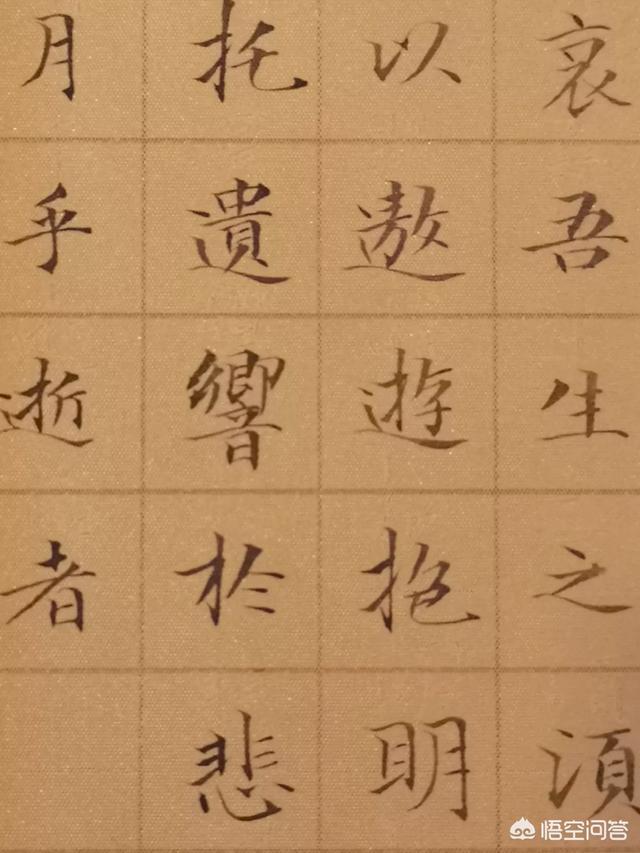 哀吾生之湏
以遨遊抱明
托遺響於悲
月乎逝者
悟空问答